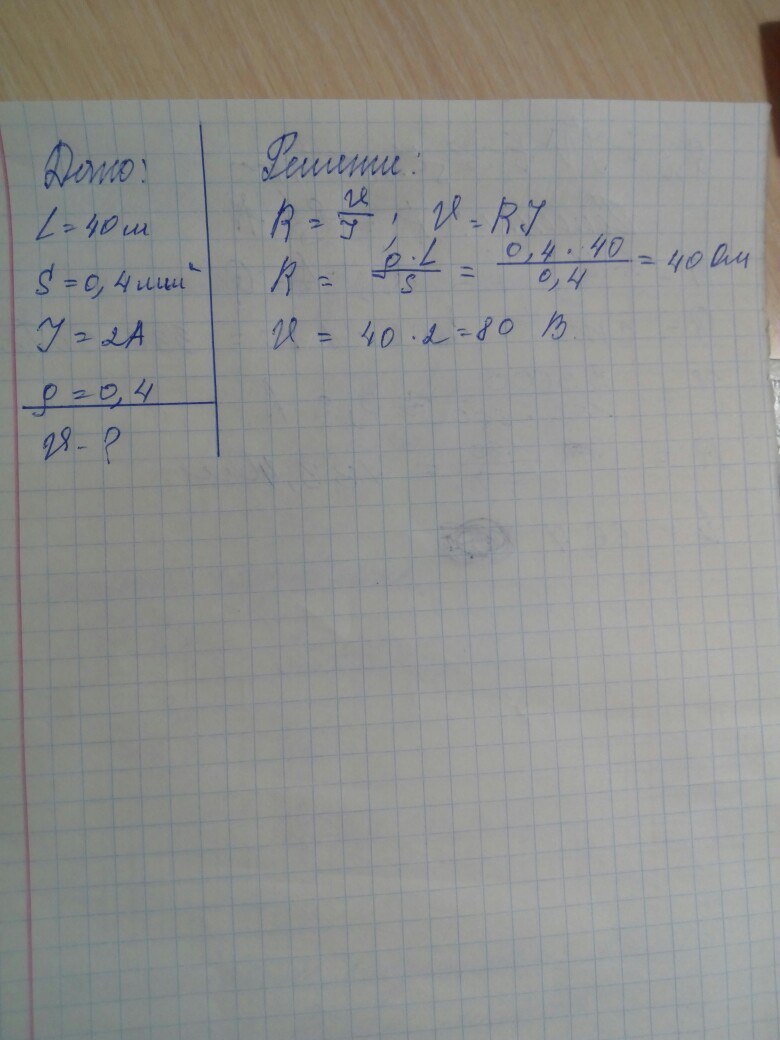 Дано:
L = 40 м
S = 0,4 мм²
I = 2А
ρ = 0,4
U - ?
Решение:
R = U/I ; U = RI
R = ρ·L/S = 0,4 · 40/0,4 = 40 Ом
U = 40 · 2 = 80 В.